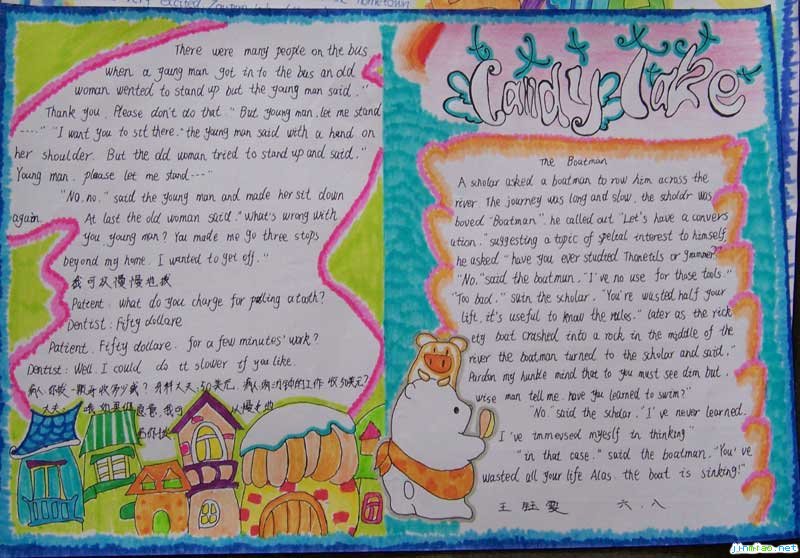 There were many people on the bus
when a young man got in to the bus an old
woman wented to stand up but the young man said."
Thank you. Please don't do that." But young man. let me stand
----" "I want you to sit there." the young man said with a hand on
her shoulder. But the old woman tried to stand up and said."
Young man. please let me stand---"
"No, no." said the young man and made her sit down
again At last the old woman said "What's wrong with
you young man? You made me go three stops
beyond my home. I wanted to get off."
我可以慢慢地拔
Patient: what do you charge for pulling a tooth?
Dentist: Fifty dollare
Patient. Fifty dollare. for a few minutes' work?
Dentist: Well. I could do it slower if you like.
Candy lake
The Boatman
A scholar asked a boatman to row him across the
river. The journey was long and slow. the scholar was
boved "Boatman". he called out "Let's have a convers
ation." suggesting a topic of speltal interest to himself.
he asked "have you ever studied Thonetils or grammer?"
"No." said the boatman, "I've no use for those tools."
"Too bad." swin the scholar. "You're wasted half your
lift. it's useful to know the rules." later as the rick
ety boat crashed into a rock in the middle of the
river the boatman turned to the scholar and said."
Pardon my humble mind that to you must see dim but.
wise man tell me. have you learned to swim?"
"No." said the scholar. "I've never learned.
I've immevsed myeslf in thinking"
"in that case." said the boatman. "You've
wasted all your life Alas. the boat is sinking!"
王 雯 六.八
jinmifao.net